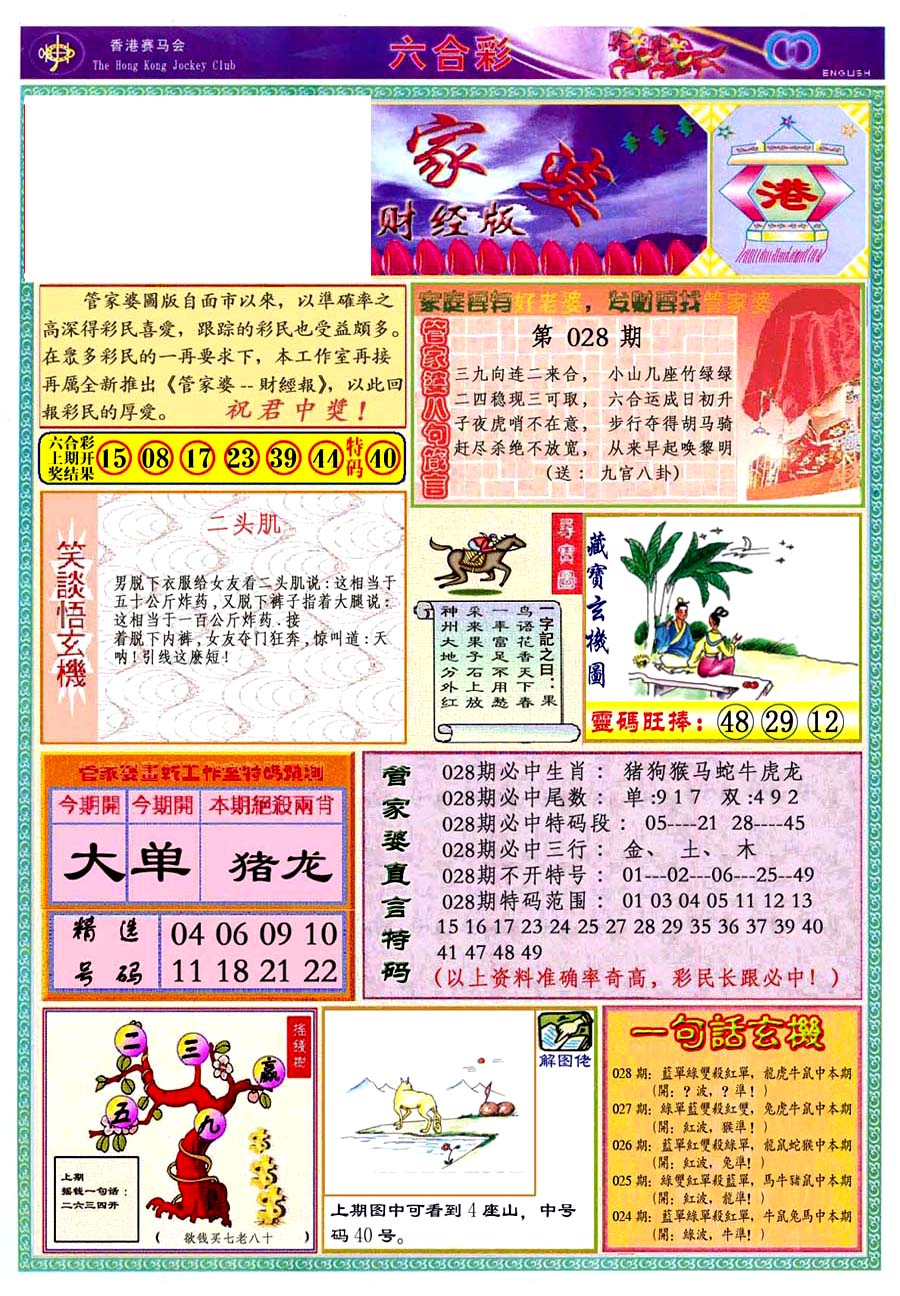 香港赛马会
The Hong Kong Jockey Club
六合彩
ENGLISH
家婆
财经版
港
管家婆圖版自面市以來，以準確率之
高深得彩民喜愛，跟踪的彩民也受益頗多。
在眾多彩民的一再要求下，本工作室再接
再厲全新推出《管家婆--財經報》，以此回
報彩民的厚愛。 祝君中獎！
六合彩
上期开
奖结果
15 08 17 23 39 44 特码 40
家庭要有好老婆，发财要找管家婆
管家婆八句箴言
第 028 期
三九向连二来合， 小山几座竹绿绿
二四稳现三可取， 六合运成日初升
子夜虎哨不在意， 步行夺得胡马骑
赶尽杀绝不放宽， 从来早起唤黎明
(送： 九宫八卦)
笑談悟玄機
二头肌
男脱下衣服给女友看二头肌说：这相当于
五十公斤炸药，又脱下裤子指着大腿说：
这相当于一百公斤炸药．接
着脱下内裤，女友夺门狂奔，惊叫道：天
呐！引线这麼短！
尋寶圖
一字記之曰：果
鸟语花香天下春
一丰富足不用愁
采来果子石上放
神州大地分外红
藏寶玄機圖
靈碼旺捧： 48 29 12
管家婆畫新工作室特碼預測
今期開 今期開 本期絕殺兩肖
大 单 猪龙
精选
号码
04 06 09 10
11 18 21 22
管家婆直言特码
028期必中生肖： 猪狗猴马蛇牛虎龙
028期必中尾数： 单:9 1 7 双:4 9 2
028期必中特码段： 05----21 28----45
028期必中三行： 金、 土、 木
028期不开特号： 01---02---06---25--49
028期特码范围： 01 03 04 05 11 12 13
15 16 17 23 24 25 27 28 29 35 36 37 39 40
41 47 48 49
(以上资料准确率奇高，彩民长跟必中！)
摇錢樹
二 三 赢 五 九
上期
摇钱一句话：
二六三四开
( 欲钱买七老八十 )
解图佬
上期图中可看到 4 座山，中号
码 40 号。
一句話玄機
028 期：藍單綠雙殺紅單，龍虎牛鼠中本期
(開：？波，？準！)
027 期：綠單藍雙殺紅雙，兔虎牛鼠中本期
(開：紅波，猴準！)
026 期：藍單紅雙殺綠單，龍鼠蛇猴中本期
(開：紅波，兔準！)
025 期：綠雙紅單殺藍單，馬牛豬鼠中本期
(開：紅波，龍準！)
024 期：藍單綠單殺紅單，牛鼠兔馬中本期
(開：綠波，牛準！)